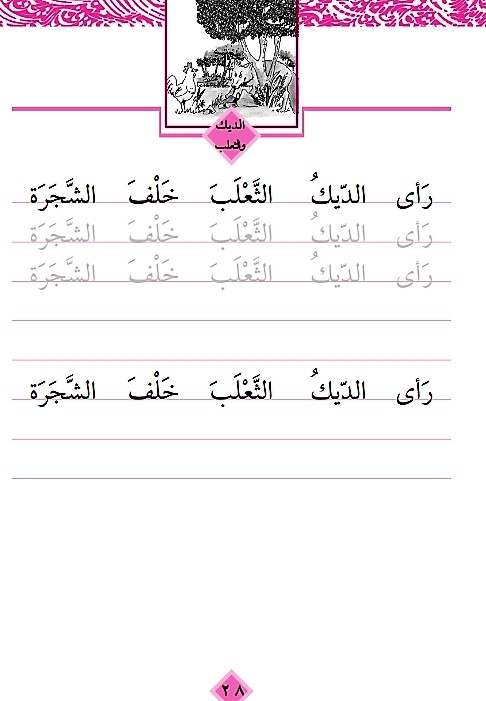 الديك
والثعلب
رَأى الدّيكُ الثَّعْلَبَ خَلْفَ الشَّجَرَة
رَأى الدّيكُ الثَّعْلَبَ خَلْفَ الشَّجَرَة
رَأى الدّيكُ الثَّعْلَبَ خَلْفَ الشَّجَرَة
رَأى الدّيكُ الثَّعْلَبَ خَلْفَ الشَّجَرَة
٢٨